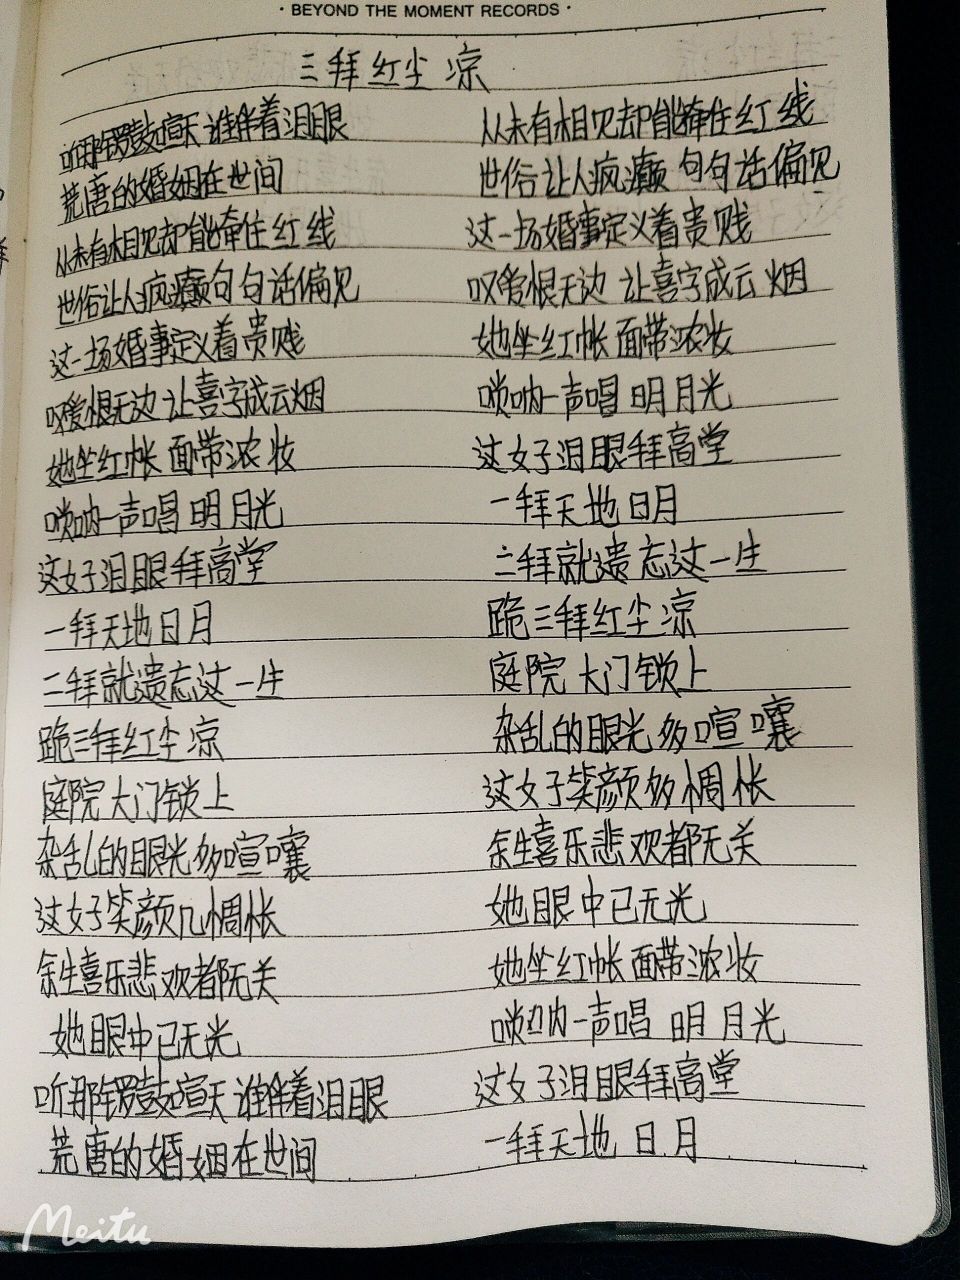 · BEYOND THE MOMENT RECORDS ·
三拜红尘凉
听那锣鼓喧天 谁伴着泪眼
荒唐的婚姻在世间
从未有相见却能牵住红线
世俗让人疯癫句句话偏见
这一场婚事定义着贵贱
叹爱恨无边 让喜字成云烟
她坐红帐 面带浓妆
唢呐一声唱 明月光
这女子泪眼拜高堂
一拜天地日月
二拜就遗忘这一生
跪三拜红尘凉
庭院大门锁上
杂乱的眼光多喧嚷
这女子笑颜几惆怅
余生喜乐悲欢都无关
她眼中已无光
听那锣鼓喧天 谁伴着泪眼
荒唐的婚姻在世间
从未有相见却能牵住红线
世俗让人疯癫 句句话偏见
这一场婚事定义着贵贱
叹爱恨无边 让喜字成云烟
她坐红帐 面带浓妆
唢呐一声唱 明月光
这女子泪眼拜高堂
一拜天地日月
二拜就遗忘这一生
跪三拜红尘凉
庭院大门锁上
杂乱的眼光多喧嚷
这女子笑颜多惆怅
余生喜乐悲欢都无关
她眼中已无光
她坐红帐 面带浓妆
唢呐一声唱 明月光
这女子泪眼拜高堂
一拜天地 日月
Meitu